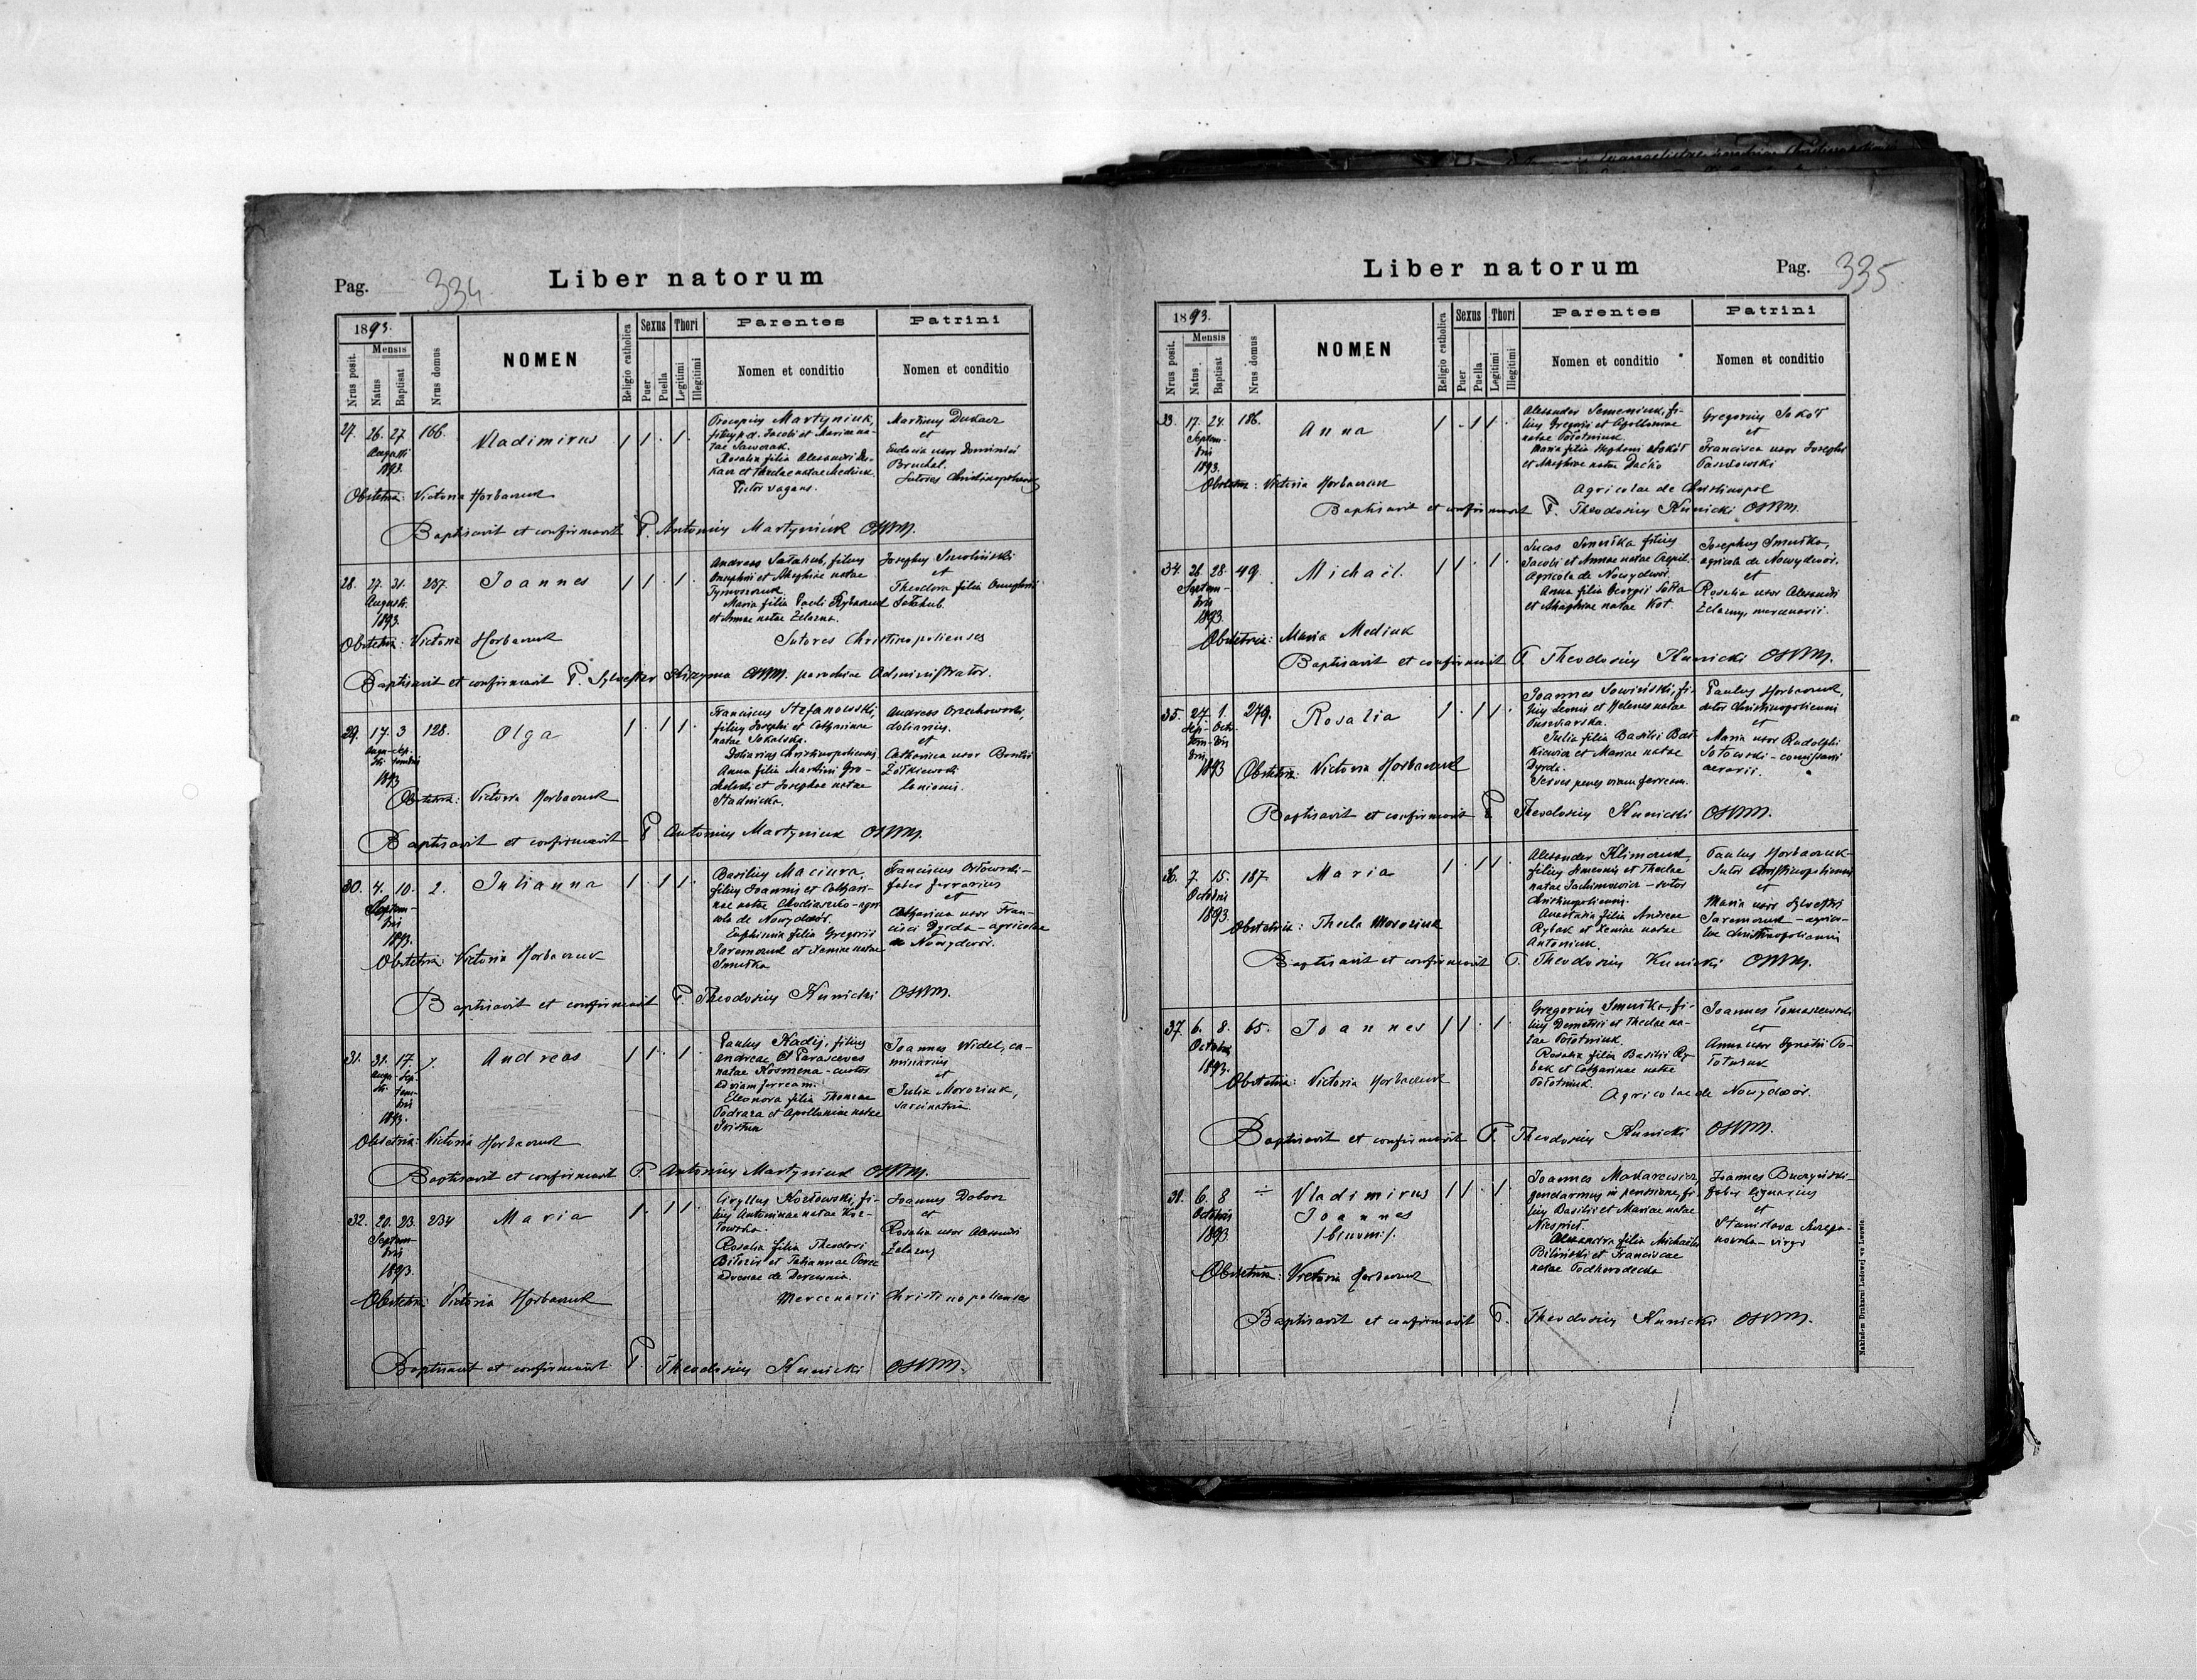 Pag. 334
Liber natorum
1893.
Mensis
Nrus posit.
Natus
Baptisat
Nrus domus
NOMEN
Religio catholica
Sexus
Puer
Puella
Thori
Legitimi
Illegitimi
Parentes
Nomen et conditio
Patrini
Nomen et conditio
27. 26. 27 166. Vladimirus 1 1 . 1 .
Augusti
1893.
Procopius Martyniuk,
filius p.d. Jacobi et Mariae na-
tae
Rosalia filia Alexandri Du-
kacz et Theclae natae Mediuk.
Pictor vagans.
Martinus Dukacz
et
Eudocia uxor Dominici
Bruchal.
Sutores Christinopoliens
Obstetrix: Victoria Horbaczuk
Baptisavit et confirmavit P. Antonius Martyniuk OSBM.
28. 27. 31. 237. Joannes 1 1 . 1 .
Augusti
1893.
Andreas Sałahub, filius
Onuphrii et Agaphiae natae
Tymoszczuk
Maria filia Pauli Rybaczuk
et Annae natae Żelazna.
Josephus Smoliński
et
Theodora filia Onuphrii
Sałahub.
Sutores Christinopolienses
Obstetrix: Victoria Horbaczuk
Baptisavit et confirmavit P. Sylvester Kizyma OSBM. parochiae Administrator.
29. 17. 3 128. Olga 1 . 1 1 .
Augu- Sep-
sti tembris
1893
Franciscus Stefanowski,
filius Josephi et Catharinae
natae Sokalska.
Doliarius Christinopoliensis
Anna filia Martini Gro-
cholski et Josephae natae
Stadnicka.
Andreas Orzechowski,
doliarius.
et
Catharina uxor Basilii
Żółkiewski
lanionis.
Obstetrix: Victoria Horbaczuk
Baptisavit et confirmavit P. Antonius Martyniuk OSBM.
30. 4. 10. 2. Julianna 1 . 1 1 .
Septem-
bris
1893.
Basilius Maciura,
filius Joannis et Cathari-
nae natae Chodiaczko - agri-
cola de Nowydwór.
Euphimia filia Gregorii
Jaremczuk et Xeniae natae
Smuśka
Franciscus Orłowski -
faber ferrarius
et
Catharina uxor Fran-
cisci Dyrda - agricolae
de Nowydwór.
Obstetrix: Victoria Horbaczuk
Baptisavit et confirmavit P. Theodosius Kunicki OSBM.
31. 31. 17. 7. Andreas 1 1 . 1 .
Augu- Sep-
sti tem-
bris
1893.
Paulus Kadij, filius
Andreae et Parasceves
natae Kosmena - custos
ad viam ferream.
Eleonora filia Thomae
Podraza et Apolloniae natae
Joannes Widel, ca-
minarius
et
Julia Moroziuk,
sarcinatrix.
Obstetrix: Victoria Horbaczuk
Baptisavit et confirmavit P. Antonius Martyniuk OSBM.
32. 20. 23. 234 Maria 1 . 1 1 .
Septem-
bris
1893.
Cyryllus Kozłowski, fi-
lius Antoninae natae Koz-
łowska.
Rosalia filia Theodori
et Tatiannae
advenae de Derewnia.
Joannes Dobosz
et
Rosalia uxor Alexandri
Żelazny
Mercenarii Christinopolienses
Obstetrix: Victoria Horbaczuk
Baptisavit et confirmavit P. Theodosius Kunicki OSBM.
Liber natorum
Pag. 335
1893.
Mensis
Nrus posit.
Natus
Baptisat
Nrus domus
NOMEN
Religio catholica
Sexus
Puer
Puella
Thori
Legitimi
Illegitimi
Parentes
Nomen et conditio
Patrini
Nomen et conditio
33. 17. 24. 186. Anna 1 . 1 1 .
Septem-
bris
1893.
Alexander Semeniuk, fi-
lius Gregorii et Apolloniae
natae Połotniuk.
Maria filia Stephani Sokół
et Agaphiae natae Daćko
Gregorius Sokół
et
Francisca uxor Josephi
Pasułowski
Agricolae de Christinopol
Obstetrix: Victoria Horbaczuk
Baptisavit et confirmavit P. Theodosius Kunicki OSBM.
34. 26. 28. 49. Michaël. 1 1 . 1 .
Septem-
bris
1893.
Lucas Smuśka filius
Jacobi et Annae natae
Agricola de Nowydwór.
Anna filia Georgii
et Agaphiae natae Kot.
Josephus Smuśka,
agricola de Nowydwór.
et
Rosalia uxor Alexandri
Żelazny, mercenarii.
Obstetrix: Maria Mediuk
Baptisavit et confirmavit P. Theodosius Kunicki OSBM.
35. 27. 1. 279. Rosalia 1 . 1 1 .
Sep- Octo-
tem- bris
bris
1893
Joannes Sowiński, fi-
lius Leonis et Helenes natae
Julia filia Basilii
et Mariae natae
Dyrda.
Servus penes viam ferream.
Paulus Horbaczuk,
sutor Christinopoliensis
et
Maria uxor Rudolphi
Sotowski - comissarii
aerarii.
Obstetrix: Victoria Horbaczuk
Baptisavit et confirmavit P. Theodosius Kunicki OSBM.
36. 7. 15. 187. Maria 1 . 1 1 .
Octobris
1893.
Alexander Klimczuk,
filius Simeonis et Theclae
natae Jachimowicz - sutor
Christinopoliensis.
Anastasia filia Andreae
Rybak et Xeniae natae
Antoniuk.
Paulus Horbaczuk -
Sutor Christinopoliensis
et
Maria uxor Sylvestri
Jaremczuk - agrico-
lae Christinopoliensis
Obstetrix: Thecla Moroziuk
Baptisavit et confirmavit P. Theodosius Kunicki OSBM.
37. 6. 8. 65. Joannes 1 1 . 1 .
Octobris
1893.
Gregorius Smuśka, fi-
lius Demetrii et Theclae na-
tae Połotniuk.
Rosalia filia Basilii Ry-
bak et Catharinae natae
Połotniuk.
Joannes Tomaszewski
et
Anna uxor Ignatii Po-
Agricolae de Nowydwór.
Obstetrix: Victoria Horbaczuk
Baptisavit et confirmavit P. Theodosius Kunicki OSBM.
38. 6. 8 ÷ Vladimirus 1 1 . 1 .
Octobris
1893
Joannes
/:binom:/.
Joannes Makarewicz,
gendarmus in pensione, fi-
lius Basilii et Mariae natae
Alexandra filia Michaëlis
Biliński et Franciscae
natae Podhorodecka
Joannes Buczyński -
faber lignarius
et
Stanislava Szczepa-
nowska - virgo
Obstetrix: Victoria Horbaczuk
Baptisavit et confirmavit P. Theodosius Kunicki OSBM.
Nakładem Drukarni Ludowej we Lwowie.